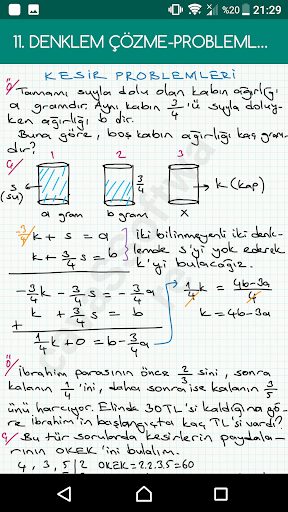 %20 21:29
11. DENKLEM ÇÖZME-PROBLEML...
KESİR PROBLEMLERİ
Ö/ Tamamı suyla dolu olan kabın ağırlığı
a gramdır. Aynı kabın 3/4 'ü suyla doluy-
ken ağırlığı b dir.
Buna göre, boş kabın ağırlığı kaç gram-
dır?
Ç/ 1 2 3
s (su) 3/4 k (kap)
a gram b gram x
-3/4 / k + s = a
k + 3/4 s = b
İki bilinmeyenli iki denk-
lemde s'yi yok ederek
k'yi bulacağız.
-3/4 k - 3/4 s = -3/4 a
+ k + 3/4 s = b
1/4 k + 0 = b - 3/4 a
1/4 k = 4b-3a/4
k = 4b-3a
Ö/ İbrahim parasının önce 2/3 sini, sonra
kalanın 1/4 'ini, daha sonra ise kalanın 3/5
ünü harcıyor. Elinde 30TL'si kaldığına gö-
re İbrahim'in başlangıçta kaç TL'si vardı?
Ç/ Bu tür sorularda kesirlerin paydala-
rının OKEK'ini bulalım.
4, 3, 5 | 2 OKEK=2.2.3.5=60